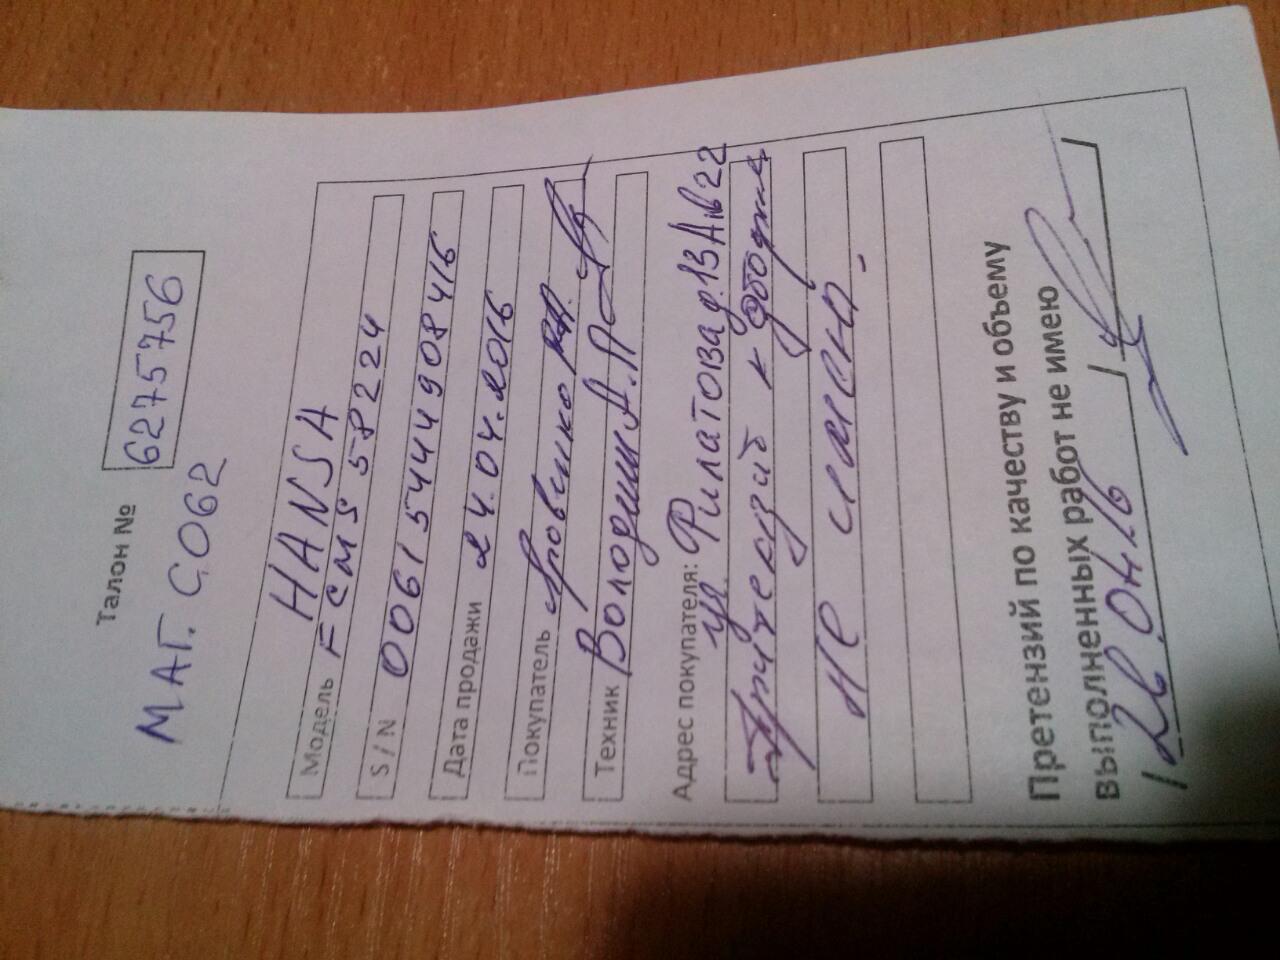 Талон № 6275756
МАГ. С062
Модель HANSA
FCMS 58224
S/N 00615444908416
Дата продажи 24.04.2016
Покупатель
Техник Володин А.П
Адрес покупателя: ул Филатова д.13 Ак 22
к
не имею.
Претензий по качеству и объему
выполненных работ не имею
/28.04.16/